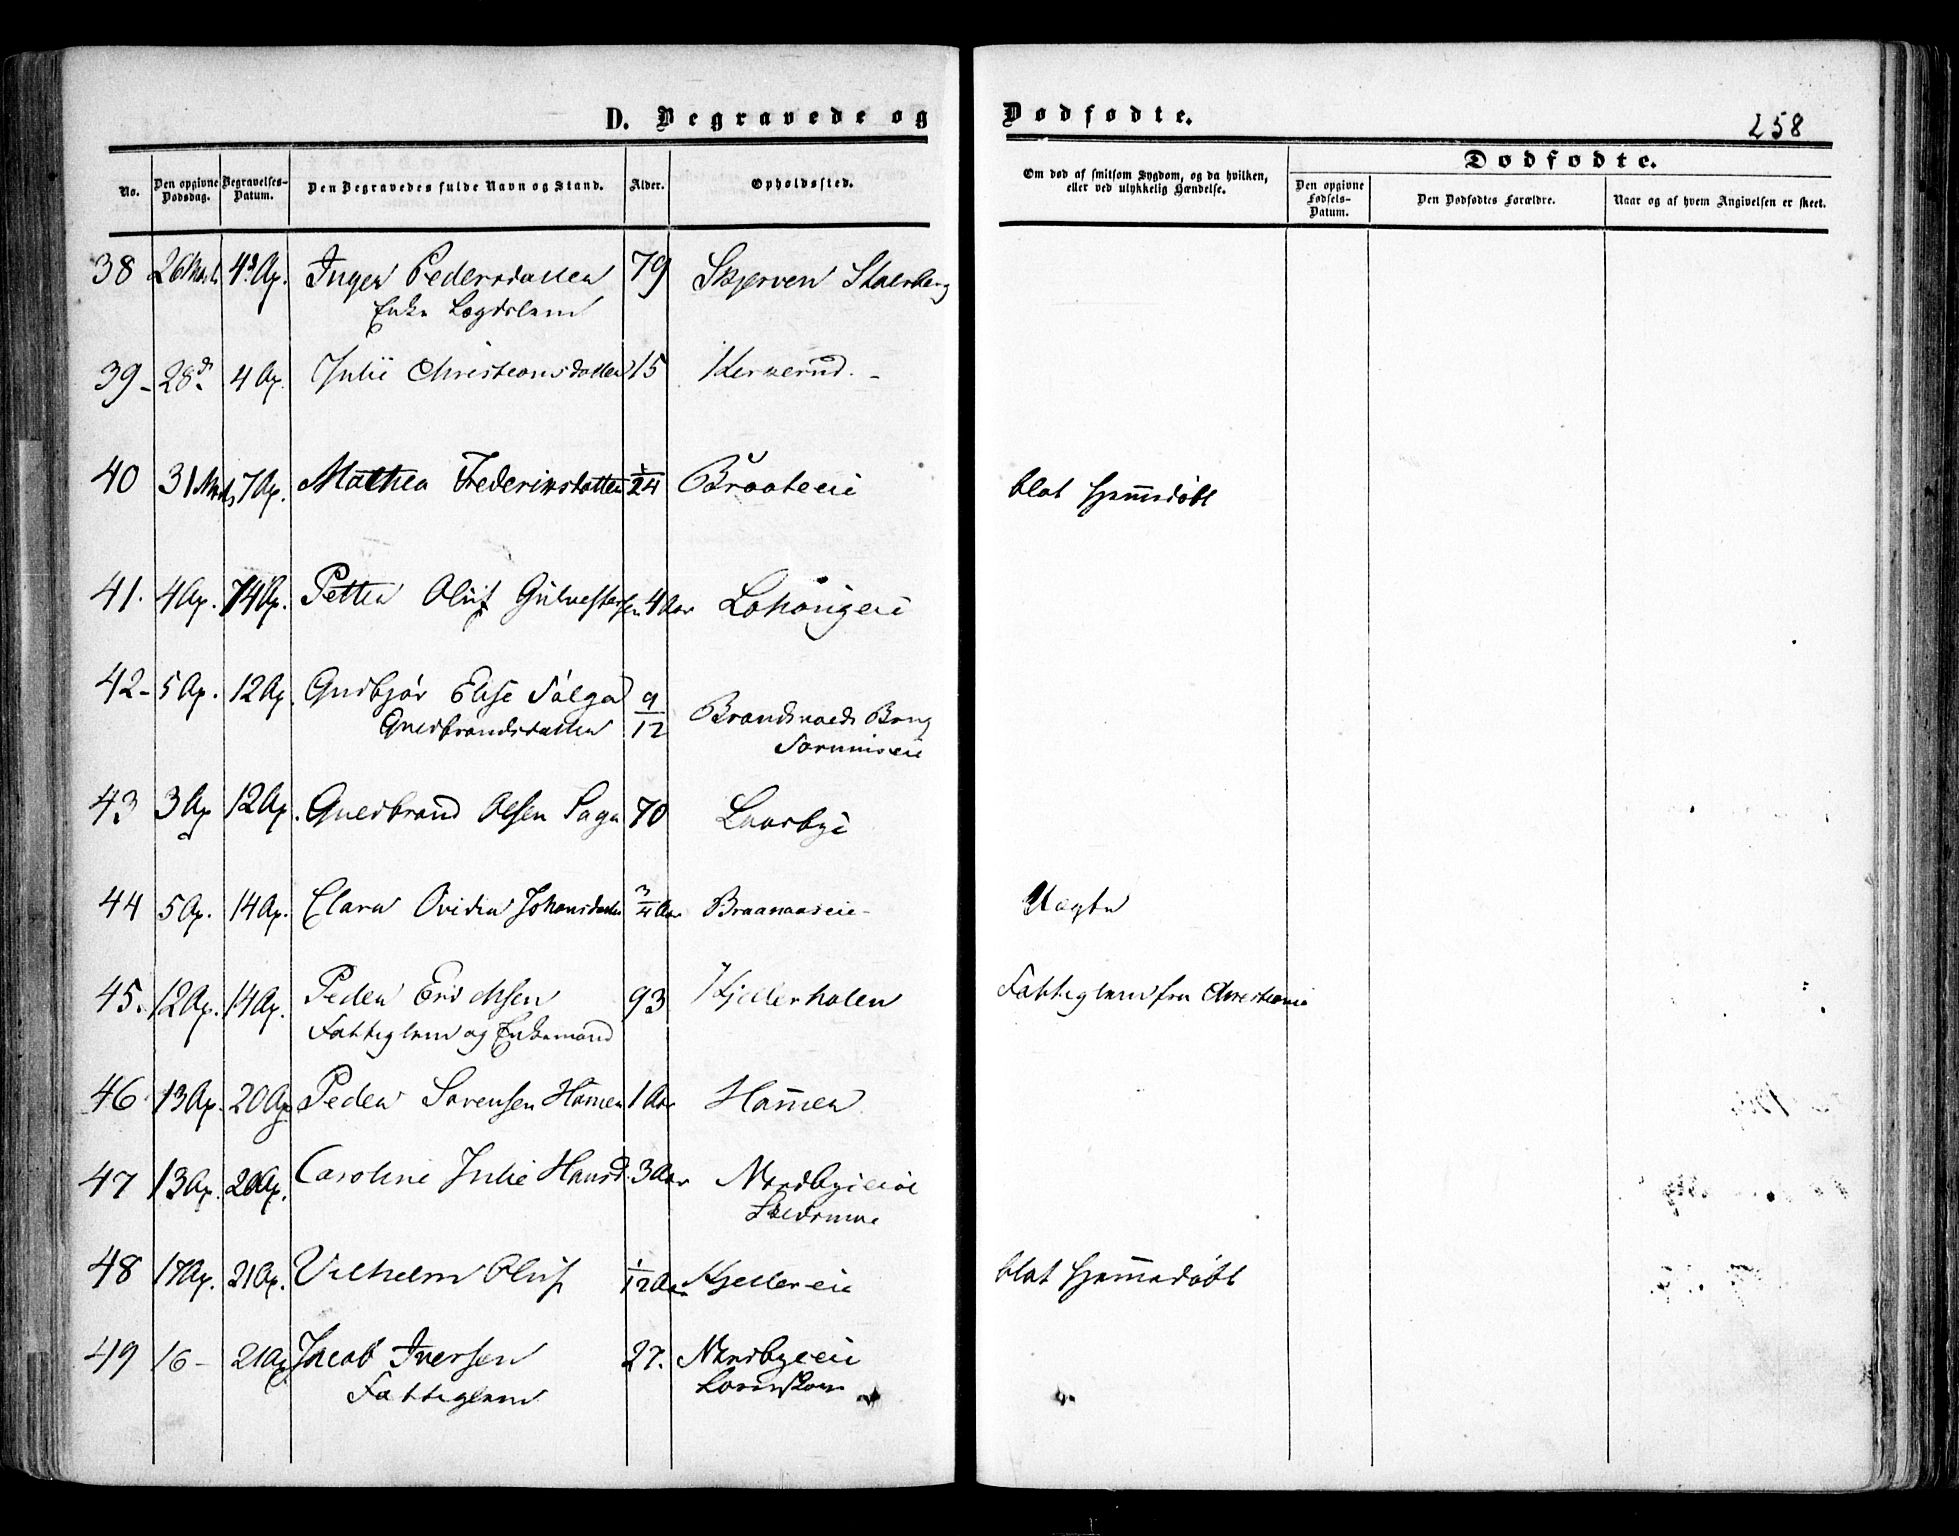 D. Begravede og Dødfødte.
258
No.
Den opgivne Dødsdag.
Begravelses-Datum.
Den Begravedes fulde Navn og Stand.
Alder.
Opholdssted.
Om død af smitsom Sygdom, og da hvilken, eller ved ulykkelig Hændelse.
Dødfødte.
Den opgivne Fødsels-Datum.
Den Dødfødtes Forældre.
Naar og af hvem Angivelsen er skeet.
38 26 Marts 4 Ap. Inger Pedersdatter 79 Skjerven
Enke Lægdslem
39 - 28 d. 4 Ap. Julie Christiansdatter 15
40 31 Marts 7 Ap. Mathea Frederiksdatter 1/24 Braateeie blot Hjemmedøbt
41. 4 Ap. 14 Ap. Petter Oluf Gulvestersen 4 Aar
42 - 5 Ap. 12 Ap. Gudbjør Elise Helga 9/12
Gulbrandsdatter
43 3 Ap 12 Ap. Gulbrand Olsen Haga 70
44 5 Ap. 14 Ap. Clara Ovidia Johansdatter 3/4 Aar Braanaaseie -
45. 12 Ap. 14 Ap. Peder Erichsen 93 Kjellerholen Fattiglem fra Christiania
Fattiglem og Enkemand
46 13 Ap. 20 Ap. Peder Sørensen Hammer 1 Aar Hammer
47 13 Ap. 20 Ap. Caroline Julie Hansd. 3 Aar Nordbyeeie
Skedsmoe
48 17 Ap. 21 Ap. Vilhelm Oluf 1/12 Aar Kjellereie blot Hjemmedøbt
49 16 - 21 Ap Jacob Iversen 27. Nordbyeeie
Fattiglem Lørenskoug